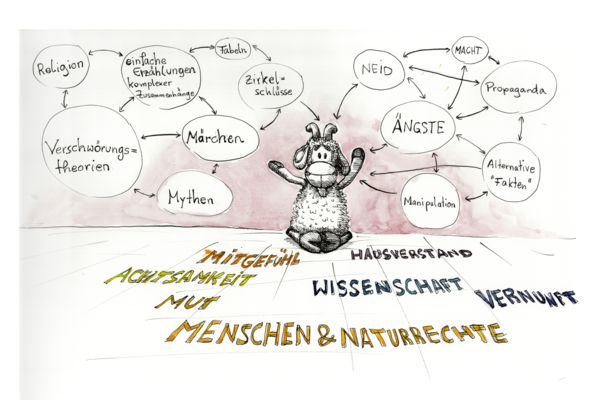 Religion
einfache
Erzählungen
komplexer
Zusammenhänge
Fabeln
Zirkel-
schlüsse
Verschwörungs-
theorien
Märchen
Mythen
NEID
MACHT
Propaganda
ÄNGSTE
Alternative
"Fakten"
Manipulation
MITGEFÜHL
HAUSVERSTAND
ACHTSAMKEIT
WISSENSCHAFT
VERNUNFT
MUT
MENSCHEN & NATURRECHTE